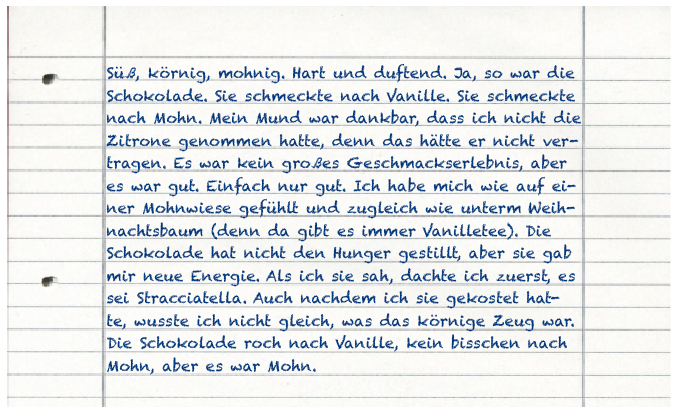 Süß, körnig, mohnig. Hart und duftend. Ja, so war die
Schokolade. Sie schmeckte nach Vanille. Sie schmeckte
nach Mohn. Mein Mund war dankbar, dass ich nicht die
Zitrone genommen hatte, denn das hätte er nicht ver-
tragen. Es war kein großes Geschmackserlebnis, aber
es war gut. Einfach nur gut. Ich habe mich wie auf ei-
ner Mohnwiese gefühlt und zugleich wie unterm Weih-
nachtsbaum (denn da gibt es immer Vanilletee). Die
Schokolade hat nicht den Hunger gestillt, aber sie gab
mir neue Energie. Als ich sie sah, dachte ich zuerst, es
sei Stracciatella. Auch nachdem ich sie gekostet hat-
te, wusste ich nicht gleich, was das körnige Zeug war.
Die Schokolade roch nach Vanille, kein bisschen nach
Mohn, aber es war Mohn.